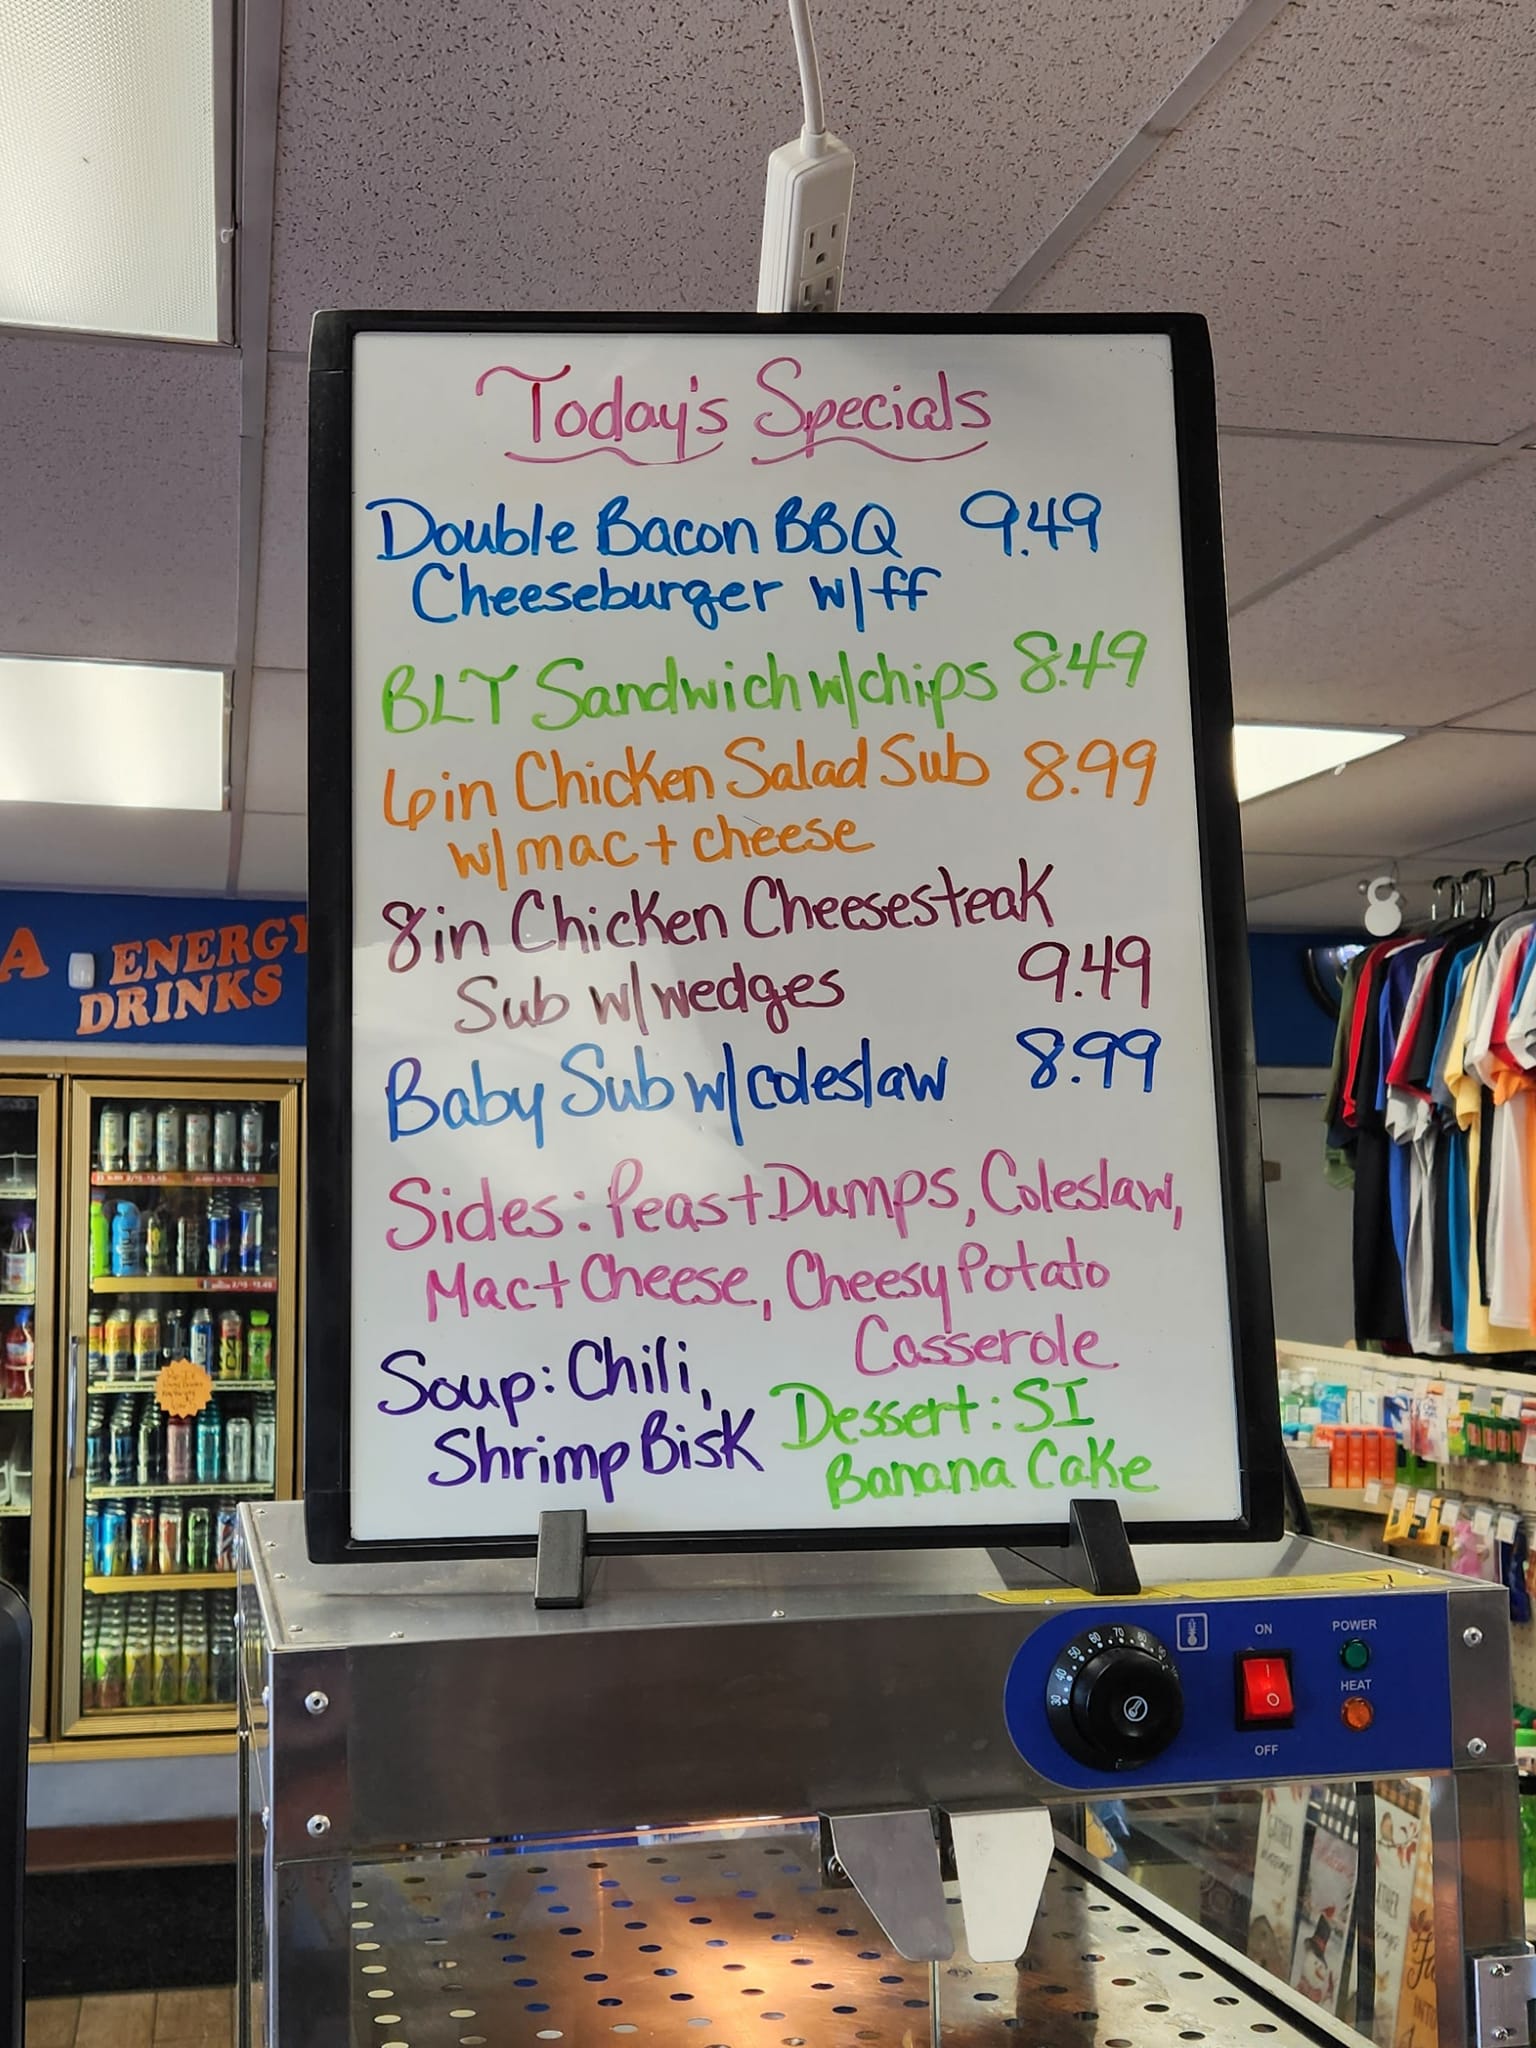 Today's Specials
Double Bacon BBQ 9.49
Cheeseburger w/ff
BLT Sandwich w/chips 8.49
6in Chicken Salad Sub 8.99
w/mac + cheese
8in Chicken Cheesesteak
Sub w/wedges 9.49
Baby Sub w/coleslaw 8.99
Sides: Peas + Dumps, Coleslaw,
Mac + Cheese, Cheesy Potato
Casserole
Soup: Chili,
Shrimp Bisk
Dessert: SI
Banana Cake
A ENERGY
DRINKS
30 40 50 60 70 80
ON
OFF
POWER
HEAT
GATHER